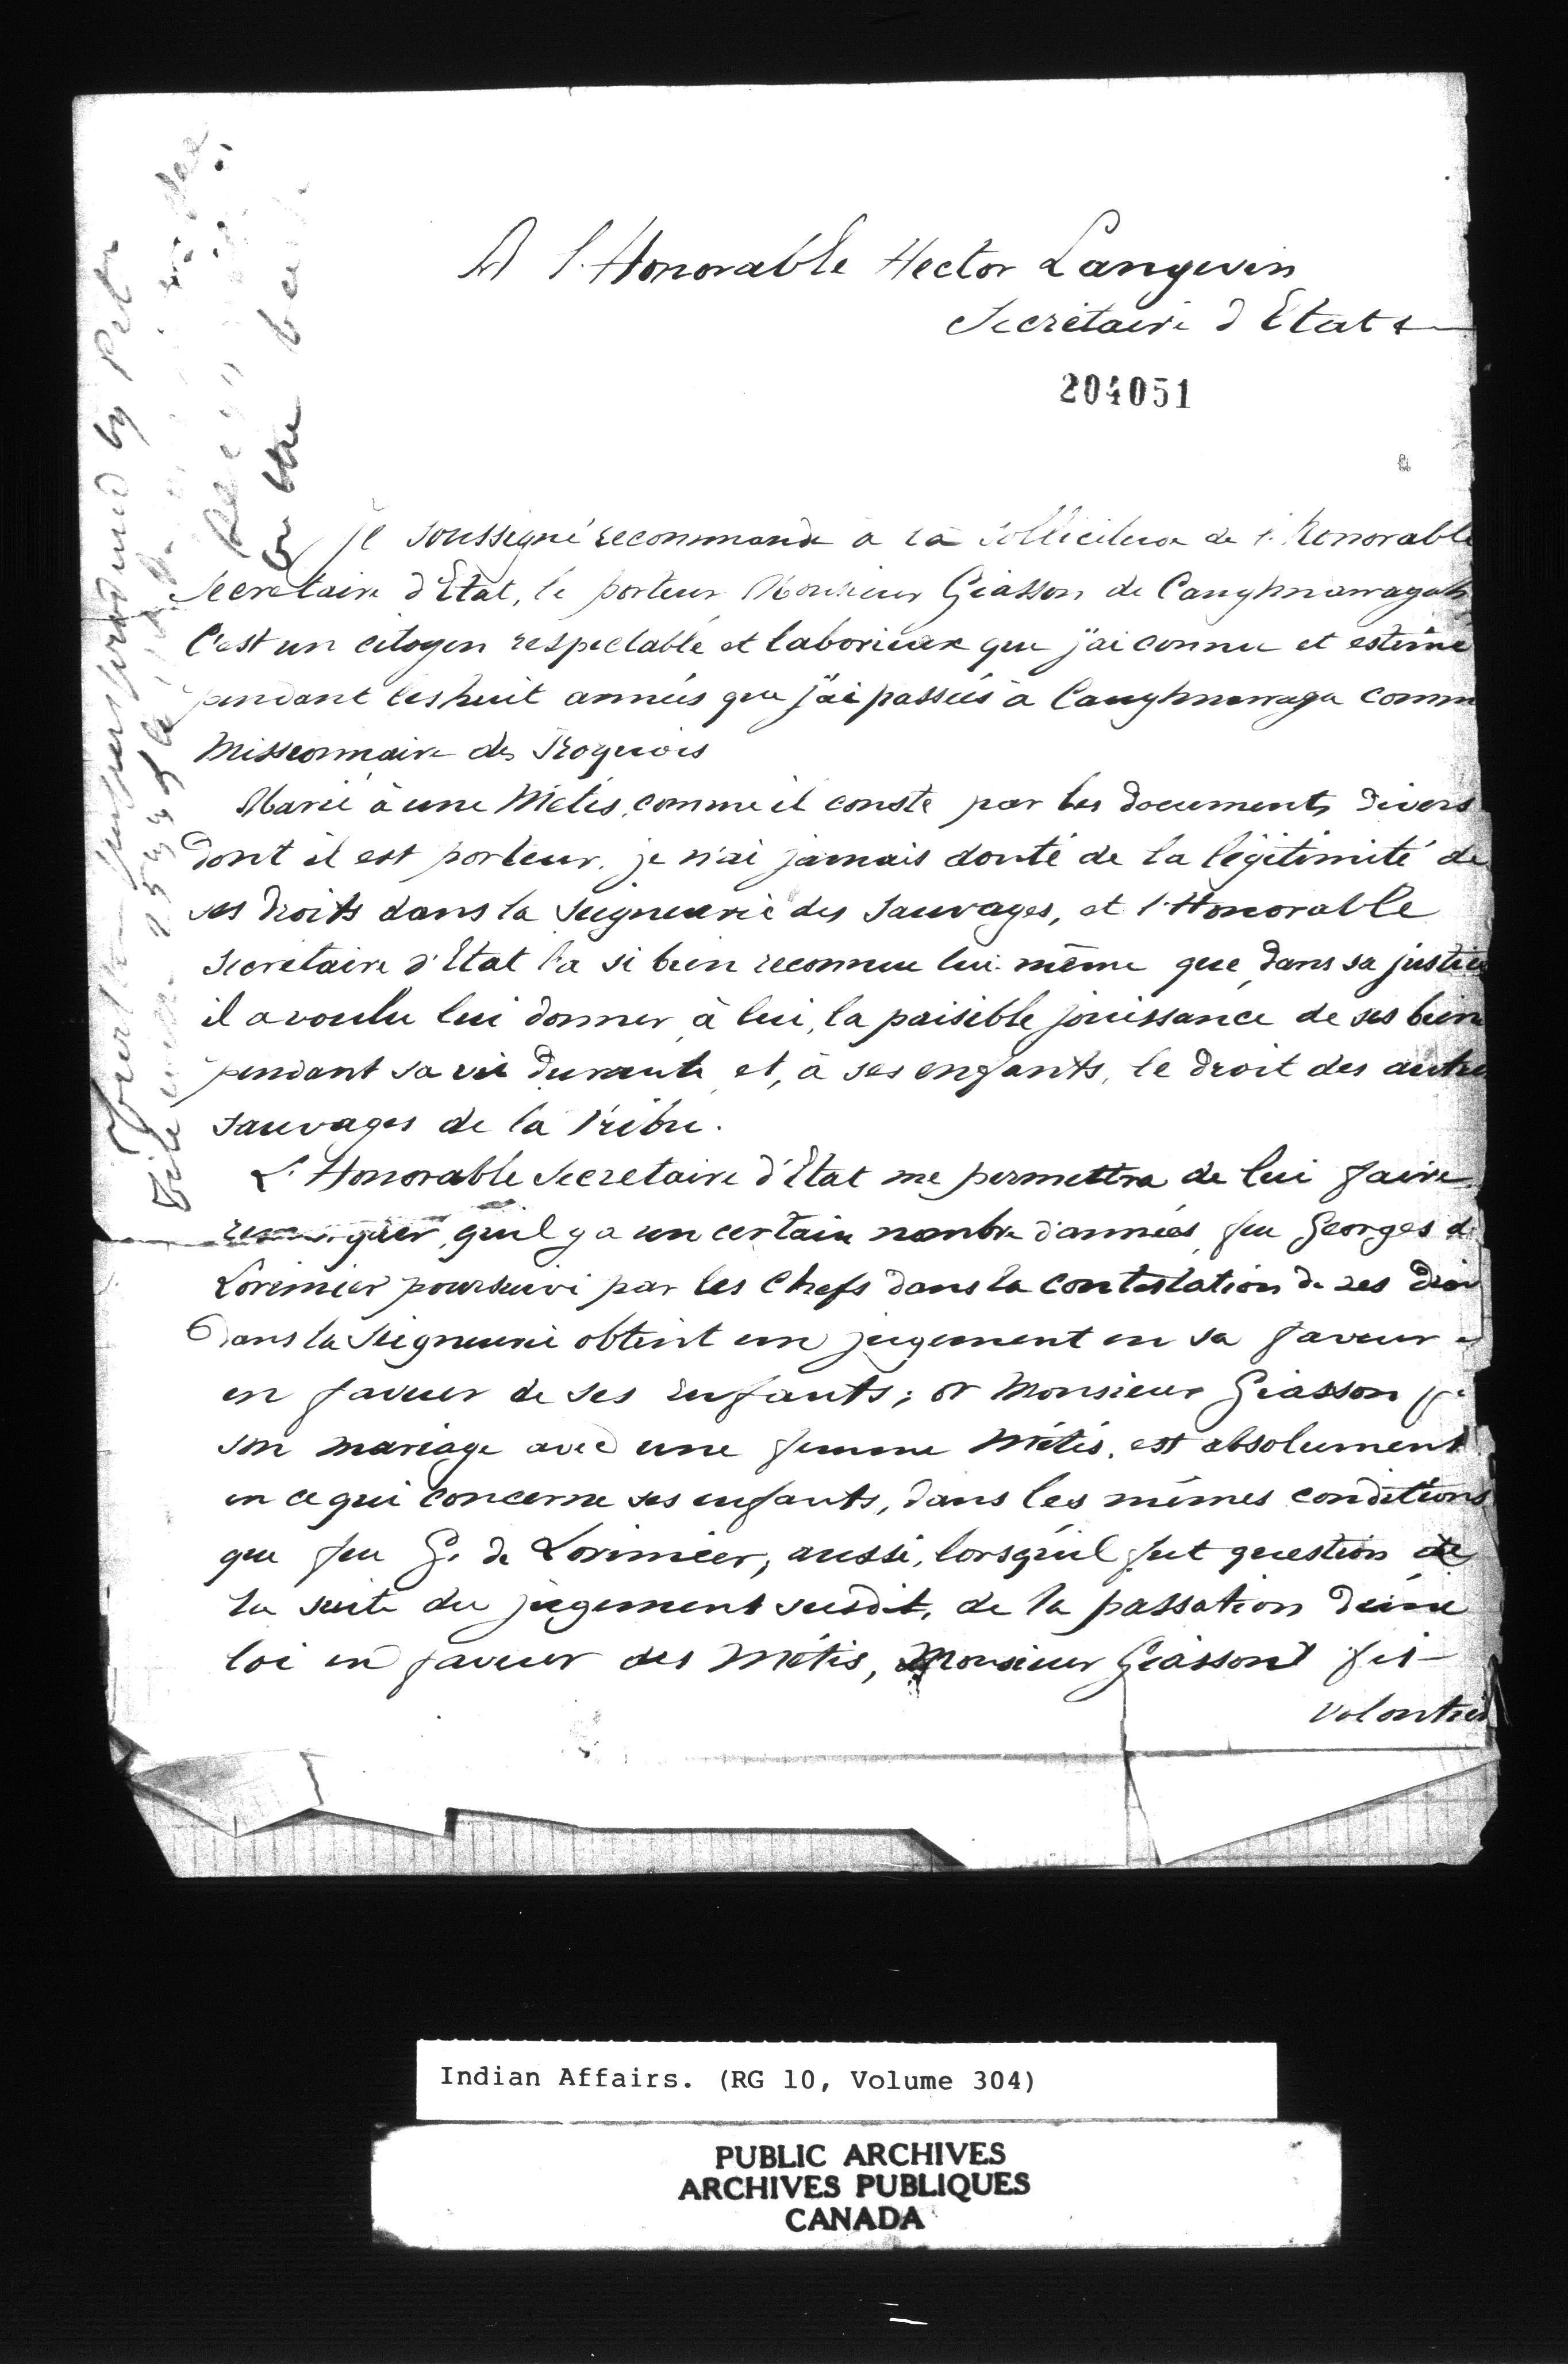 A l'Honorable Hector Langevin
Secrétaire d'Etat &
204051
Je soussigné recommande à la sollicitude de l'Honorable
Secretaire d'Etat, le porteur Monsieur Giasson de Caughnawagah
C'est un citoyen respectable et laborieux que j'ai connu et estimé
pendant les huit années que j'ai passées à Caughnawaga comm
Missionnaire des Iroquois
Marié à une Métis, comme il conste par les documents divers
dont il est porteur, je n'ai jamais douté de la légitimité de
ses droits dans la Seigneurie des Sauvages, et l'Honorable
Secretaire d'Etat l'a si bien reconnu lui-même que, dans sa justice
il a voulu lui donner, à lui, la paisible jouissance de ses bien
pendant sa vie durante, et, à ses enfants, le droit des autre
sauvages de la Tribu.
L'Honorable Secretaire d'Etat me permettra de lui faire
remarquer, qu'il y a un certain nombre d'années, feu Georges de
Lorimier poursuivi par les Chefs dans la contestation de ses droi
dans la Seigneurie obtint un jugement en sa faveur
en faveur de ses enfants; or Monsieur Giasson
son mariage avec une femme Métis, est absolument
en ce qui concerne ses enfants, dans les mêmes conditions
que feu G. de Lorimier; aussi, lorsqu'il fut question de
la suite du jugement susdit, de la passation d'une
loi en faveur des Métis, Monsieur Giasson fit
volontier
Further papers produced by Peter
File
on the back
Indian Affairs. (RG 10, Volume 304)
PUBLIC ARCHIVES
ARCHIVES PUBLIQUES
CANADA